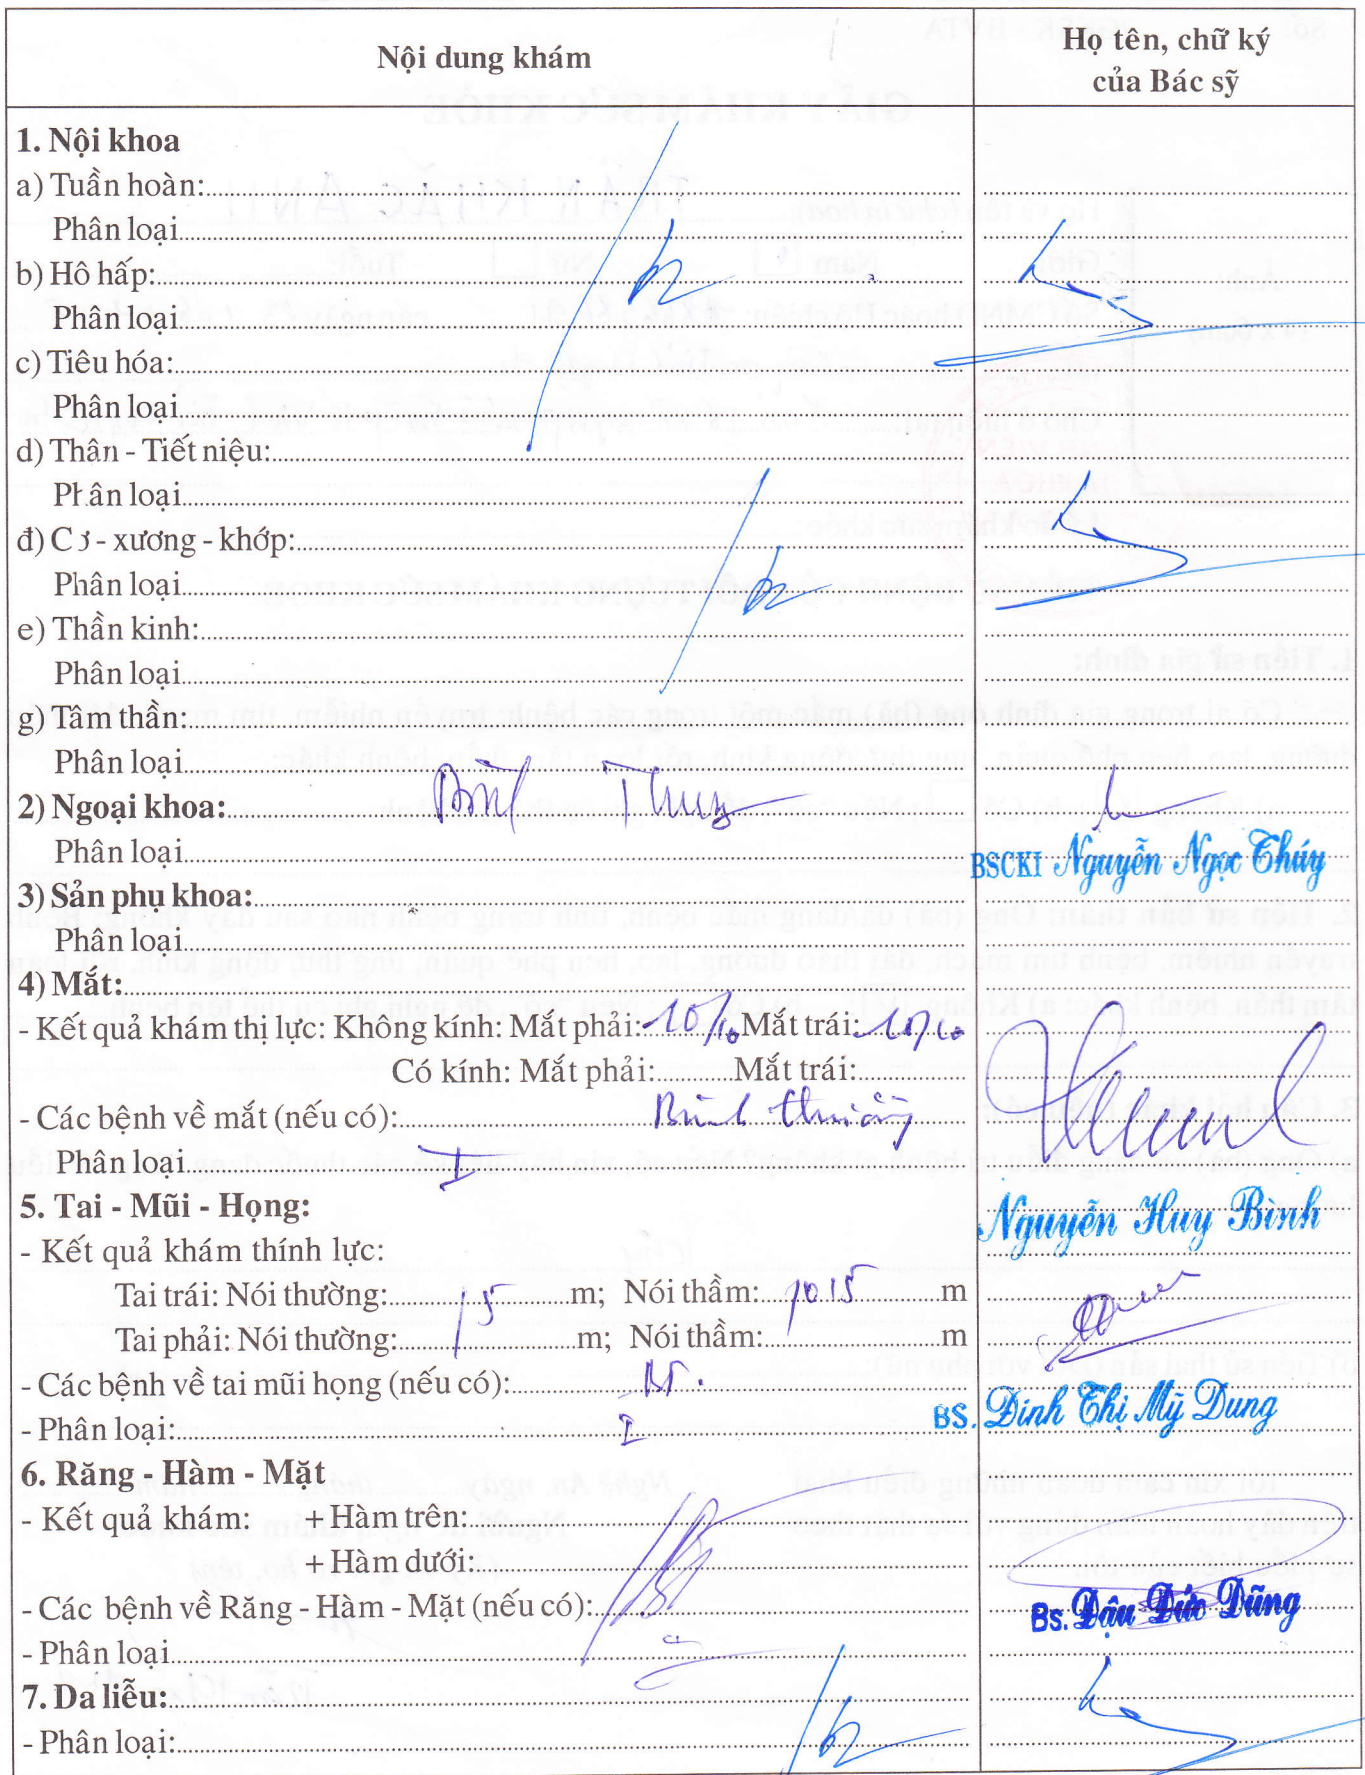 Nội dung khám
Họ tên, chữ ký
của Bác sỹ
1. Nội khoa
a) Tuần hoàn:
Phân loại
b) Hô hấp:
Phân loại
c) Tiêu hóa:
Phân loại
d) Thân - Tiết niệu:
Phân loại
đ) Cơ - xương - khớp:
Phân loại
e) Thần kinh:
Phân loại
g) Tâm thần:
Phân loại
2) Ngoại khoa:
Phân loại
BSCKI Nguyễn Ngọc Thúy
3) Sản phu khoa:
Phân loại
4) Mắt:
- Kết quả khám thị lực: Không kính: Mắt phải: 10/10 Mắt trái: 10/10
Có kính: Mắt phải: Mắt trái:
- Các bệnh về mắt (nếu có): Bình thường
Phân loại I
Nguyễn Huy Bình
5. Tai - Mũi - Họng:
- Kết quả khám thính lực:
Tai trái: Nói thường: 5 m; Nói thầm: 0,5 m
Tai phải: Nói thường: m; Nói thầm: m
- Các bệnh về tai mũi họng (nếu có):
BS. Đinh Thị Mỹ Dung
- Phân loại: I
6. Răng - Hàm - Mặt
- Kết quả khám: + Hàm trên:
+ Hàm dưới:
- Các bệnh về Răng - Hàm - Mặt (nếu có):
Bs. Đậu Đức Dũng
- Phân loại
7. Da liễu:
- Phân loại: